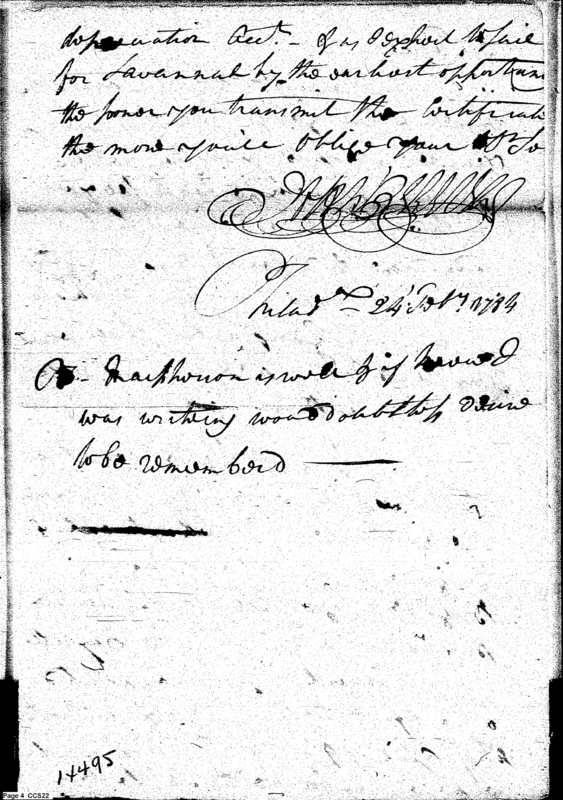 depreciation Acct. - & as I expect to sail
for Savannah by the earliest opportun
the sooner you transmit the Certificate
the more you'le Oblige your
Philada. 24 Feby. 1784
Ps - Macpherson is well & if he knew I
was writeing would doubtless desire
to be rememberd
14495
Page 4 CCS22